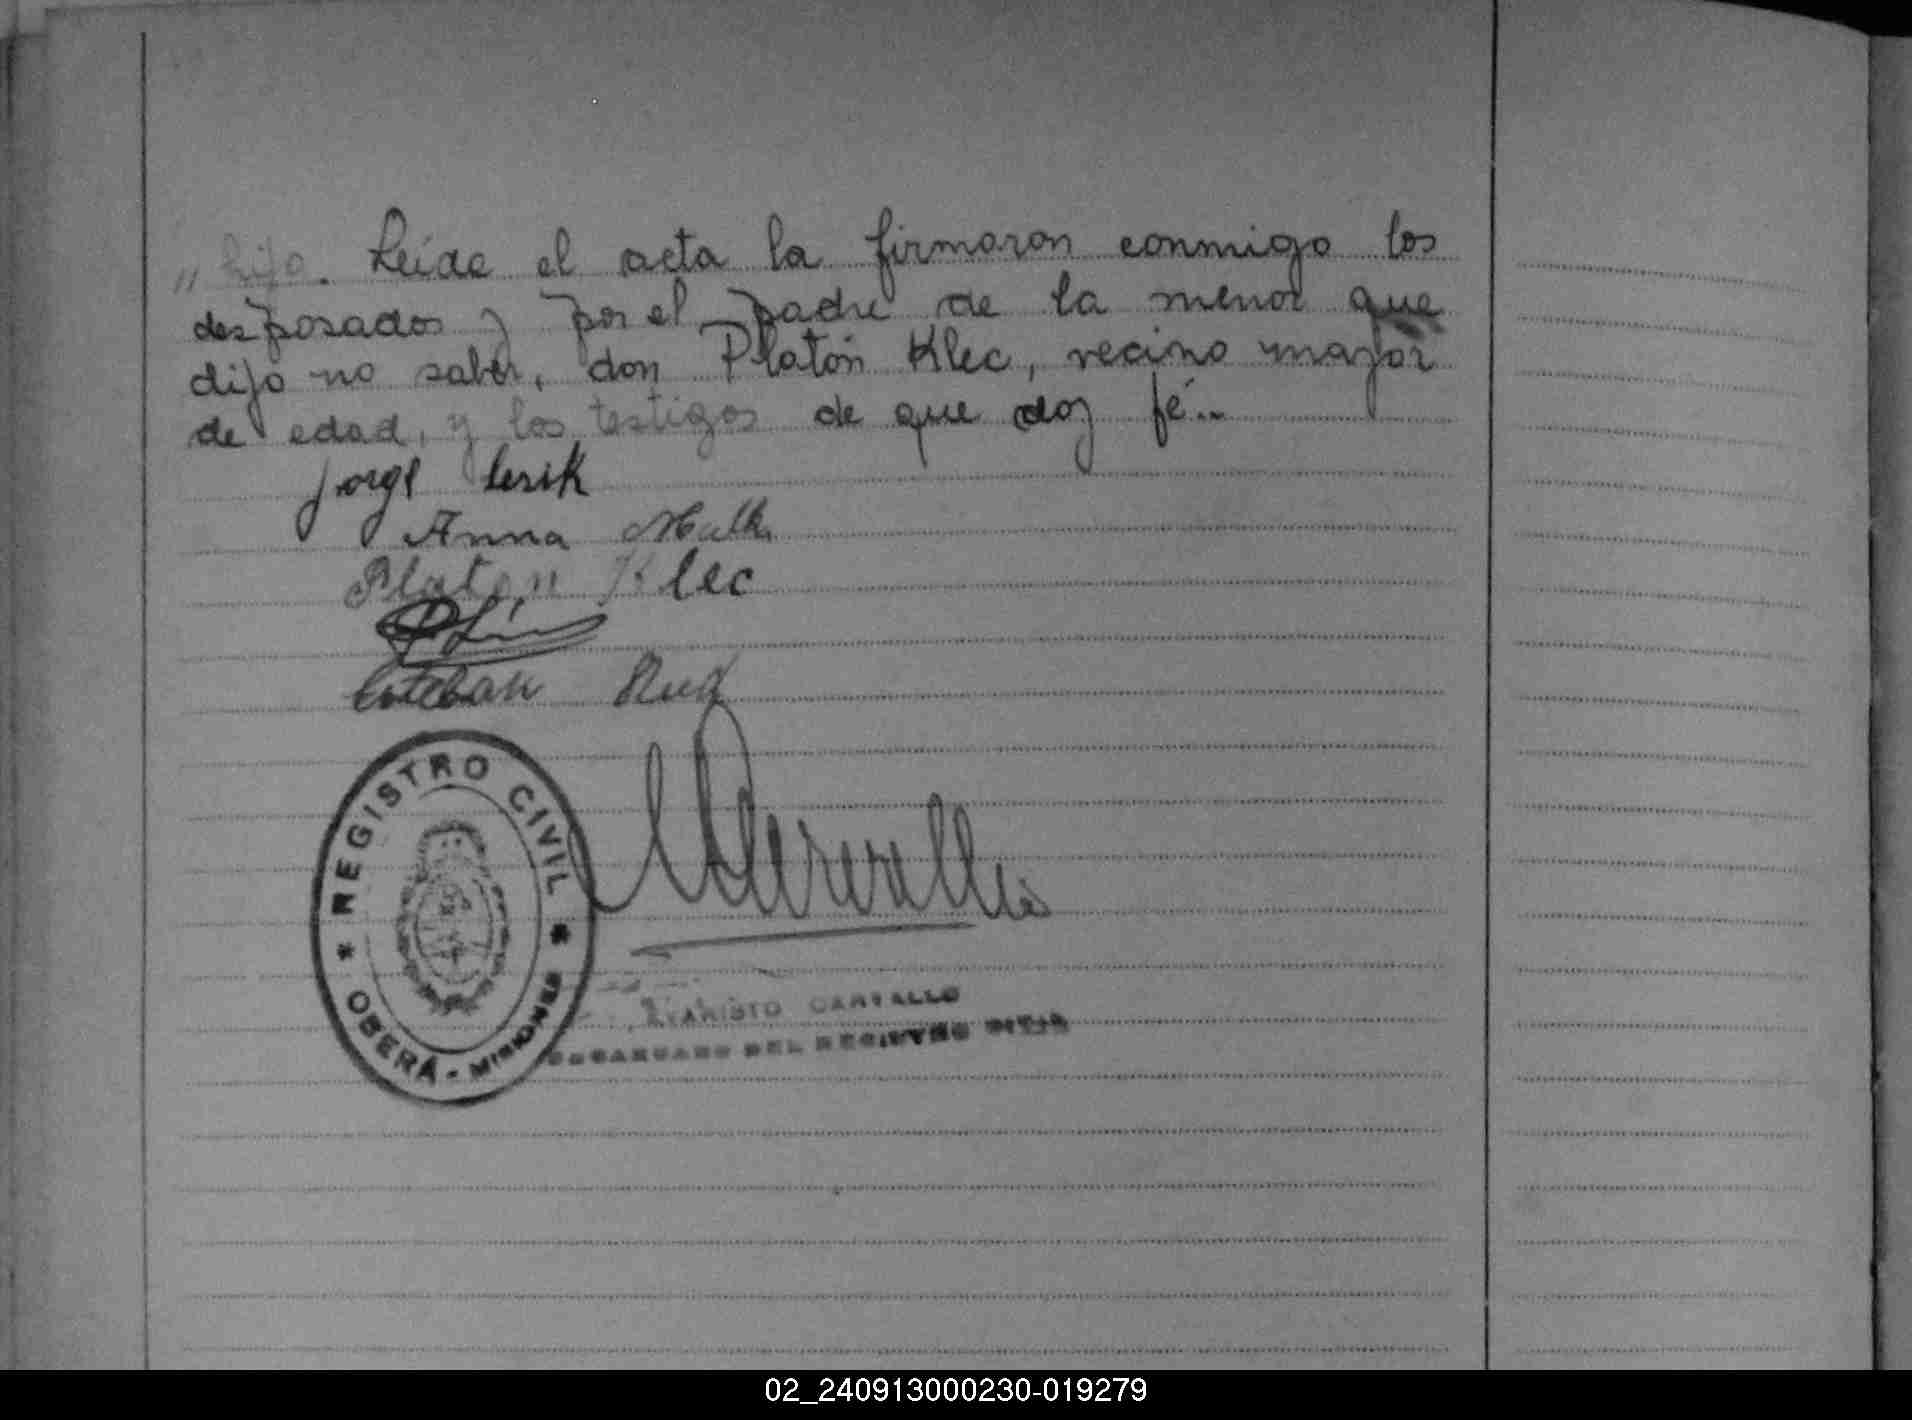 " hija. Leída el acta la firmaron conmigo los
desposados y por el padre de la menor que
dijo no saber, don Platón Klec, vecino mayor
de edad, y los testigos de que doy fé..
Jorge Lesik
Anna
Platon Klec
Esteban
REGISTRO CIVIL
* OBERÁ - MISIONES *
EVARISTO CARVALLO
ENCARGADO DEL REGISTRO CIVIL
02_240913000230-019279